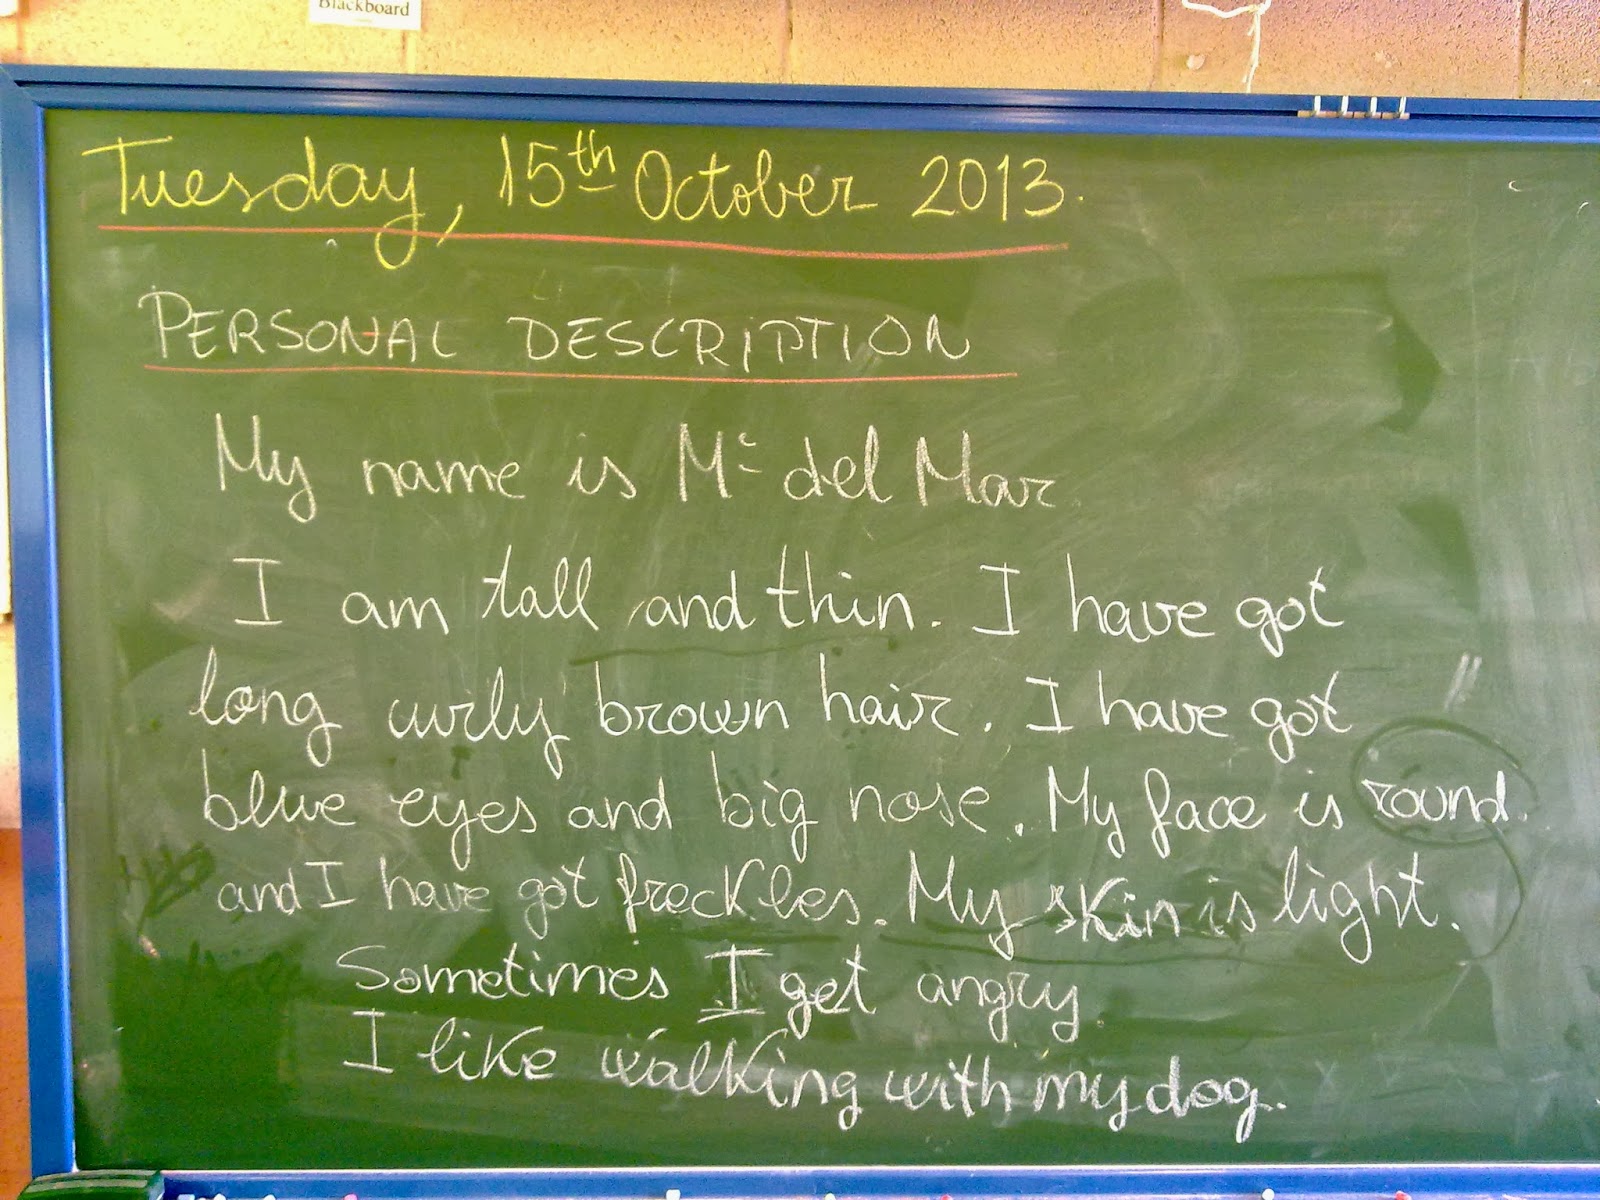 Blackboard
Tuesday, 15th October 2013.
PERSONAL DESCRIPTION
My name is Mª del Mar
I am tall and thin. I have got
long curly brown hair. I have got
blue eyes and big nose. My face is round.
and I have got freckles. My skin is light.
Sometimes I get angry
I like walking with my dog.